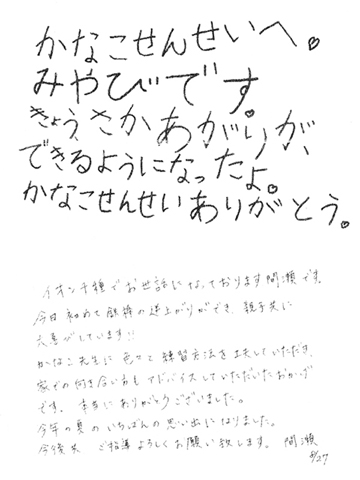 かなこせんせいへ。
みやびです。
きょうさかあがりが、
できるようになったよ。
かなこせんせいありがとう。
イオン千種でお世話になっております間瀬です。
今日初めて鉄棒の逆上がりができ、親子共に
大喜びしています!!
かなこ先生に色々と練習方法を工夫していただき、
家での向き合い方もアドバイスしていただいたおかげ
です。本当にありがとうございました。
今年の夏のいちばんの思い出になりました。
今後共 ご指導よろしくお願い致します。 間瀬
8/27